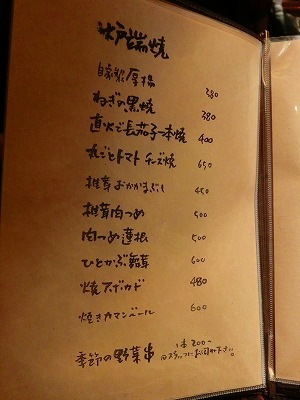 炉端焼
自家製厚揚 380
ねぎの黒焼 380
直火で長茄子一本焼 400
丸ごとトマトチーズ焼 650
椎茸おかかまぶし 450
椎茸肉つめ 500
肉つめ蓮根 500
ひとかぶ舞茸 600
焼アボカド 480
焼きカマンベール 600
季節の野菜串 1本 200〜
スタッフにお尋ね下さい。